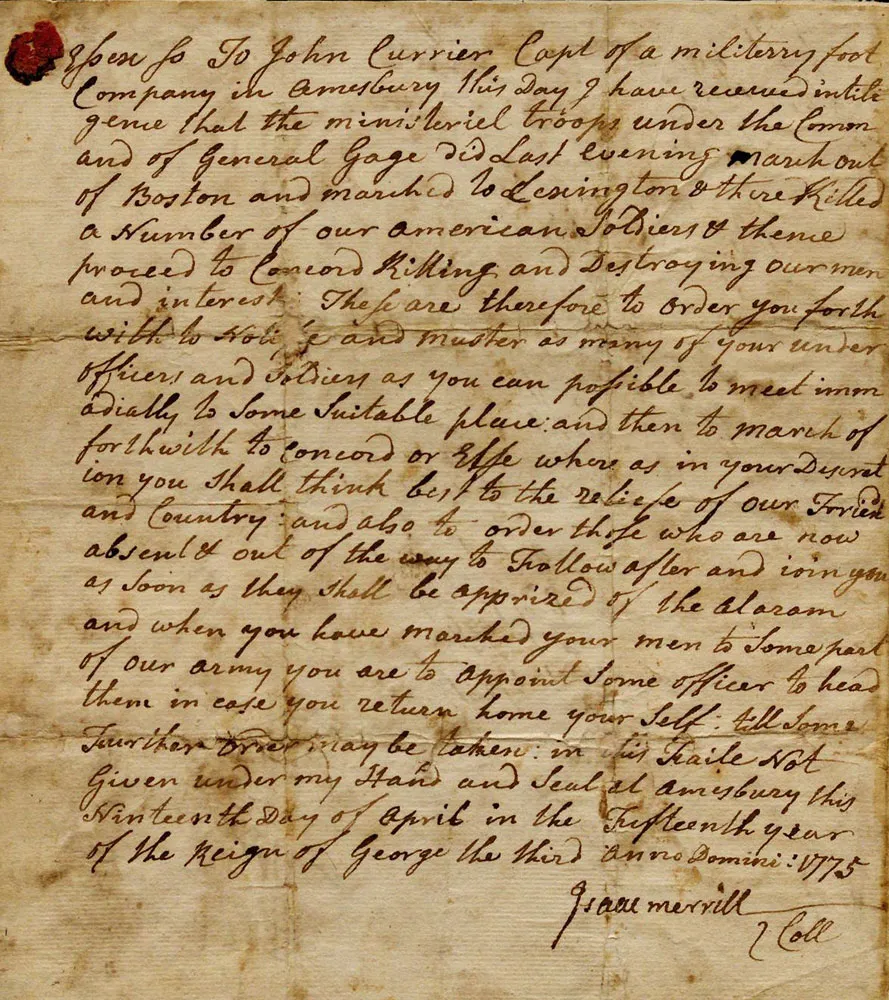 Essex ss To John Currier Capt of a militerry foot
Company in Amesbury this Day I have receeved intili
gence that the ministeriel troops under the Comm
and of General Gage did Last evening march out
of Boston and marched to Lexington & there Killed
a Number of our american Soldiers & thence
proceed to Concord Killing and Destroying our men
and interest: These are therefore to order you forth
with to Notice and muster as many of your under
officers and Soldiers as you can possible to meet imm
adially to Some Suitable place: and then to march of
forthwith to Concord or Else where as in your Descret
ion you Shall think best to the reliefe of our Friend
and Country: and also to order those who are now
absent & out of the way to Follow after and ioin you
as Soon as they shall be apprized of the Alaram
and when you have marched your men to Some part
of our army you are to appoint Some officer to head
them in case you return home your Self: till Some
Further order may be taken: in this Faile Not
Given under my Hand and Seal at Amesbury this
Ninteenth Day of April in the Fifteenth year
of the Reign of George the third Anno Domini: 1775
Isaac merrill
Coll